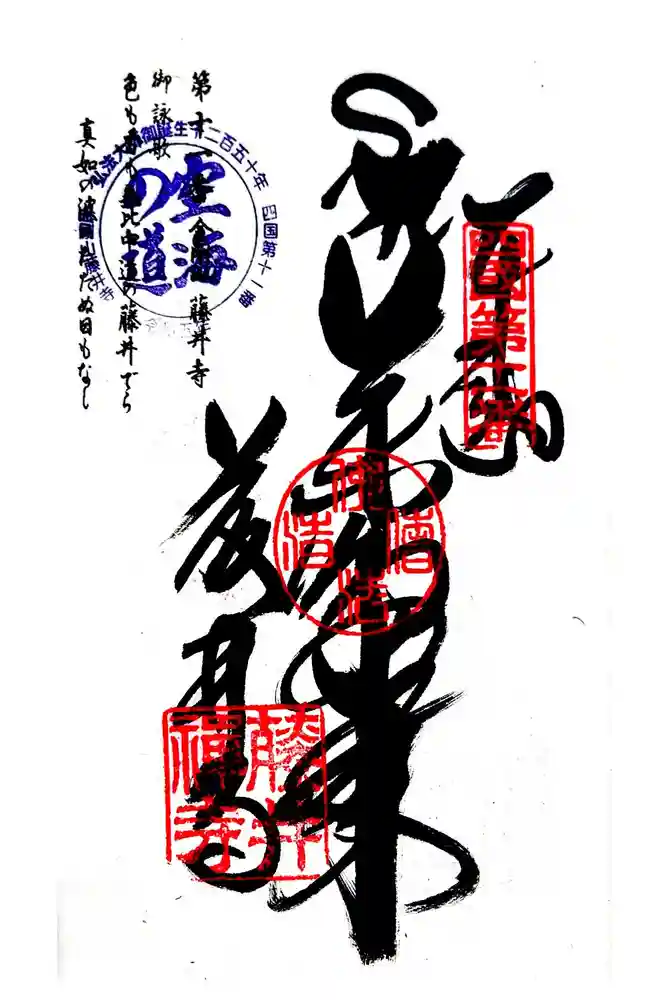 奉納
四國第十一番
薬師如来
佛法僧
藤井寺
藤井禅寺
第十一番 金剛山 藤井寺
御詠歌
色も香も無比中道の藤井でら
真如の波のたたぬ日もなし
弘法大師御誕生千二百五十年 四国第十一番
空海の道
藤井寺